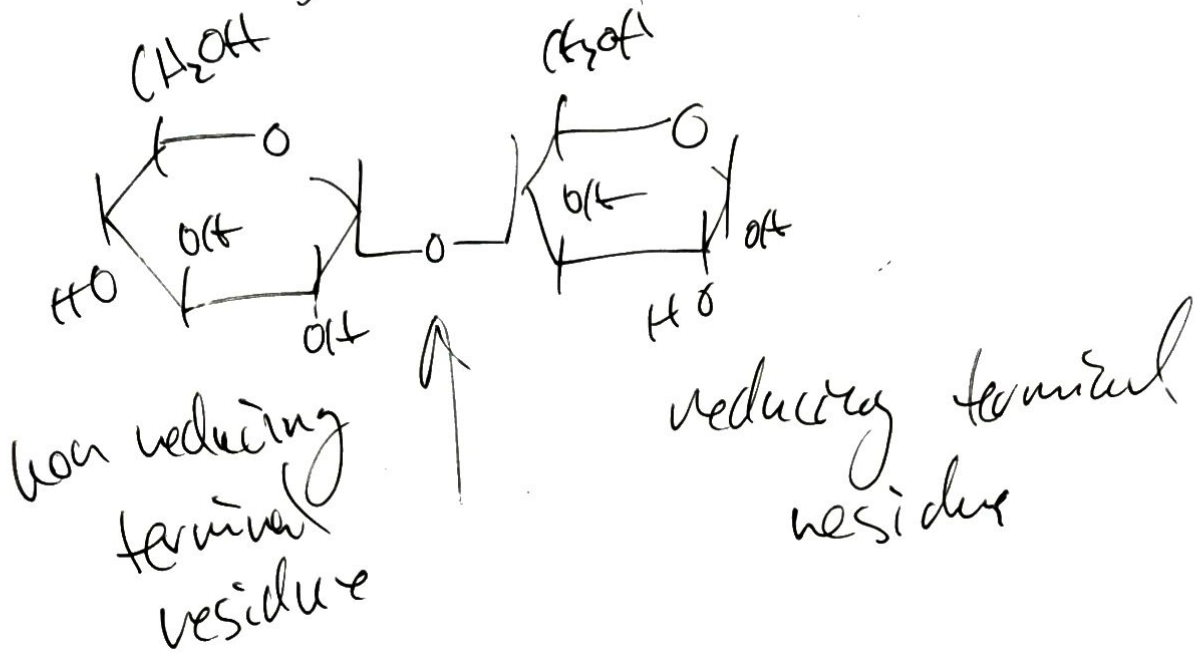 CH₂OH CH₂OH
O O
OH OH
HO OH
OH O HO
non reducing
terminal
residue
reducing terminal
residue